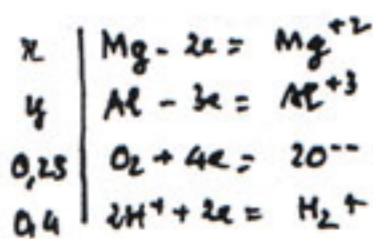 x | Mg - 2e = Mg+2
y | Al - 3e = Al+3
0,25 | O2 + 4e = 2O--
0,4 | 2H+ + 2e = H2↑